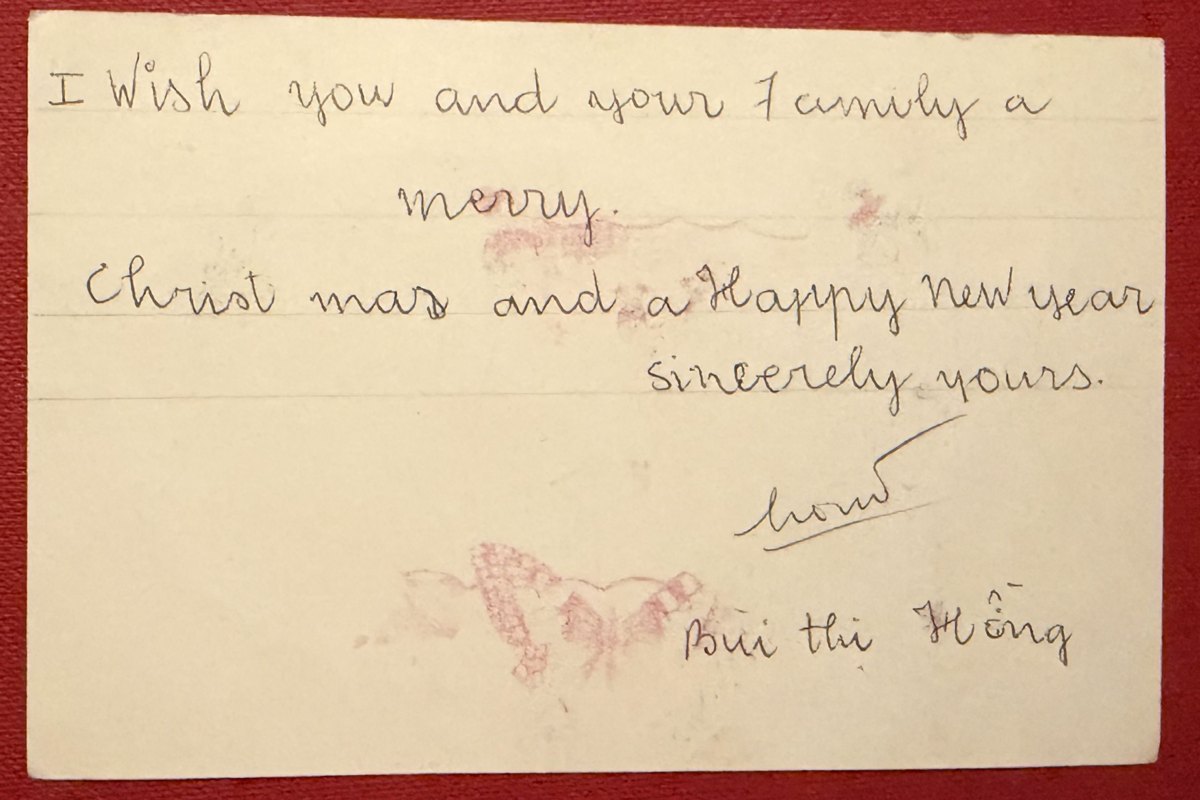 I Wish you and your Family a
merry.
Christ mas and a Happy New year
sincerely yours.
Bùi thị Hồng